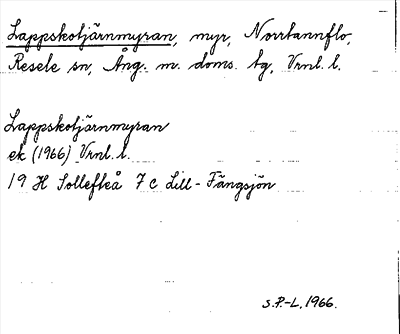 Lappskotjärnmyran, myr, Norrtannflo,
Resele sn, Ång. m. doms. tg, Vrnl. l.
Lappskotjärnmyran
ek (1966) Vrnl. l.
19 H Sollefteå 7 c Lill-Fängsjön
S.P.-L, 1966.